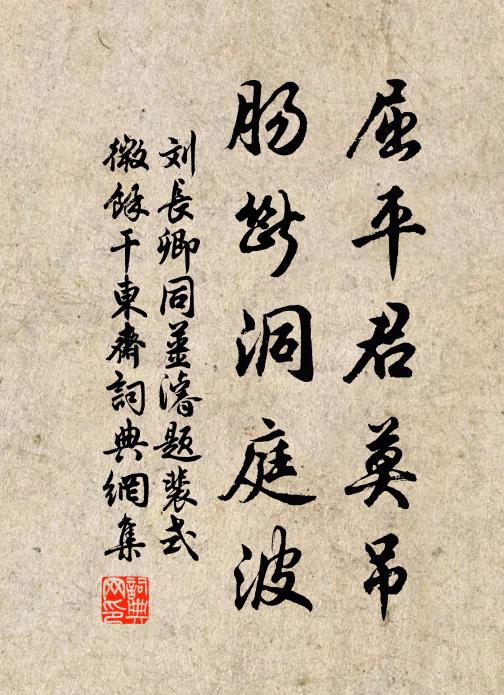 屈平君莫吊
肠断洞庭波
刘長卿同姜濬题裴式
微餘干東齋詞典網集
詞典网印